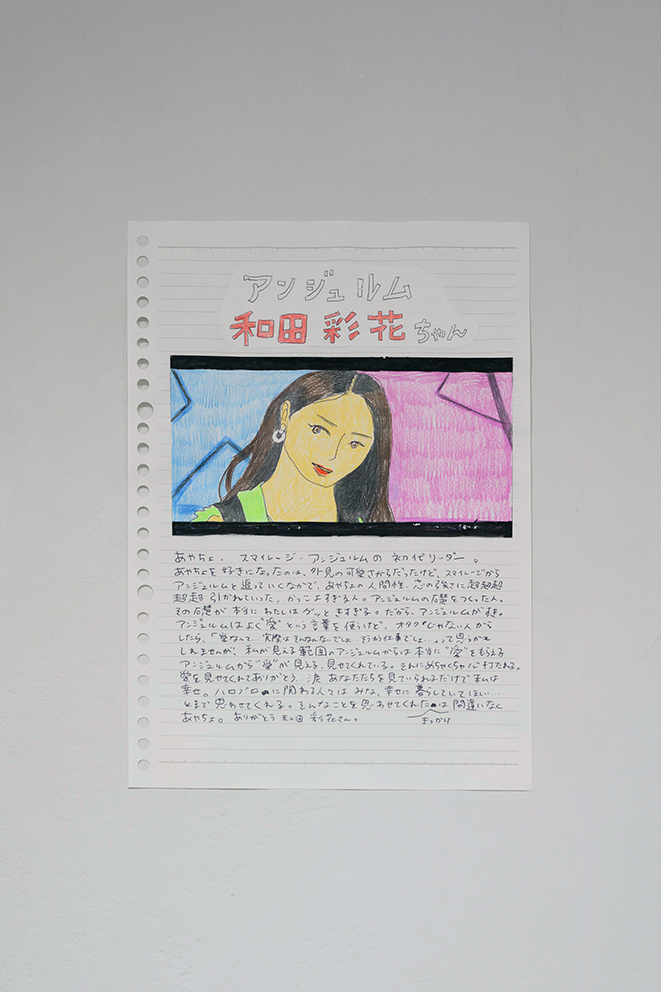 アンジュルム
和田 彩花ちゃん
あやちょ。 スマイレージ・アンジュルムの 初代リーダー。
あやちょを好きになったのは、外見の可愛さからだったけど、スマイレージから
アンジュルムと追っていくなかで、あやちょの人間性、芯の強さに超超超
超超 引かれていった。かっこよすぎる人。アンジュルムの礎をつくった人。
その礎が 本当に わたしは グッと きすぎる。だから、アンジュルムがすき。
アンジュルムはよく“愛”という言葉を使うけど、オタクじゃない人から
したら、「愛なんて、実際はそんなんないでしょ…そうゆう仕事でしょ…」って思うかも
しれませんが、私が見える範囲のアンジュルムからは本当に“愛”をもらえる
アンジュルムから“愛”が見える、見せてくれている。それにめちゃくちゃ心打たれる。
愛を見せてくれてありがとう…涙 あなたたちを見ていられるだけで私は
幸せ。ハロプロに関わる人てはみな、幸せに暮らしていてほしい…
とまで思わせてくれる。そんなことを思わせてくれたきっかけは 間違いなく
あやちょ。ありがとう 和田 彩花さん。